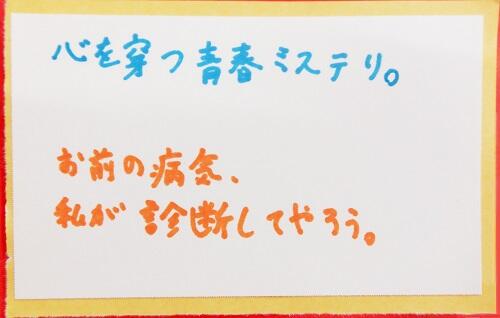 心を穿つ青春ミステリ。
お前の病気、
私が診断してやろう。